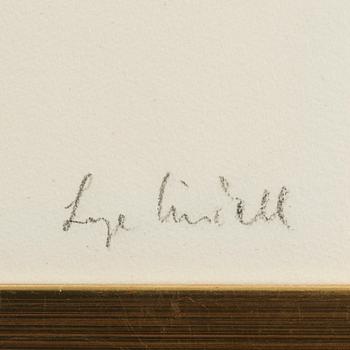 Lage Lindell